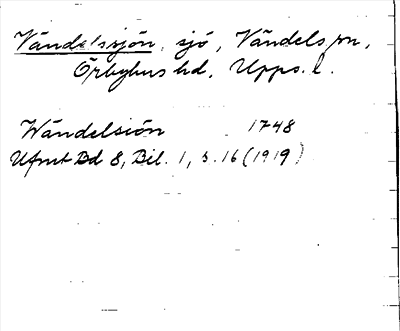 Vändelssjön, sjö, Vändels sn,
Örbyhus hd, Upps. l.
Wändelsiön 1748
Ufmt Bd 8, Bil. 1, s. 16 (1919)